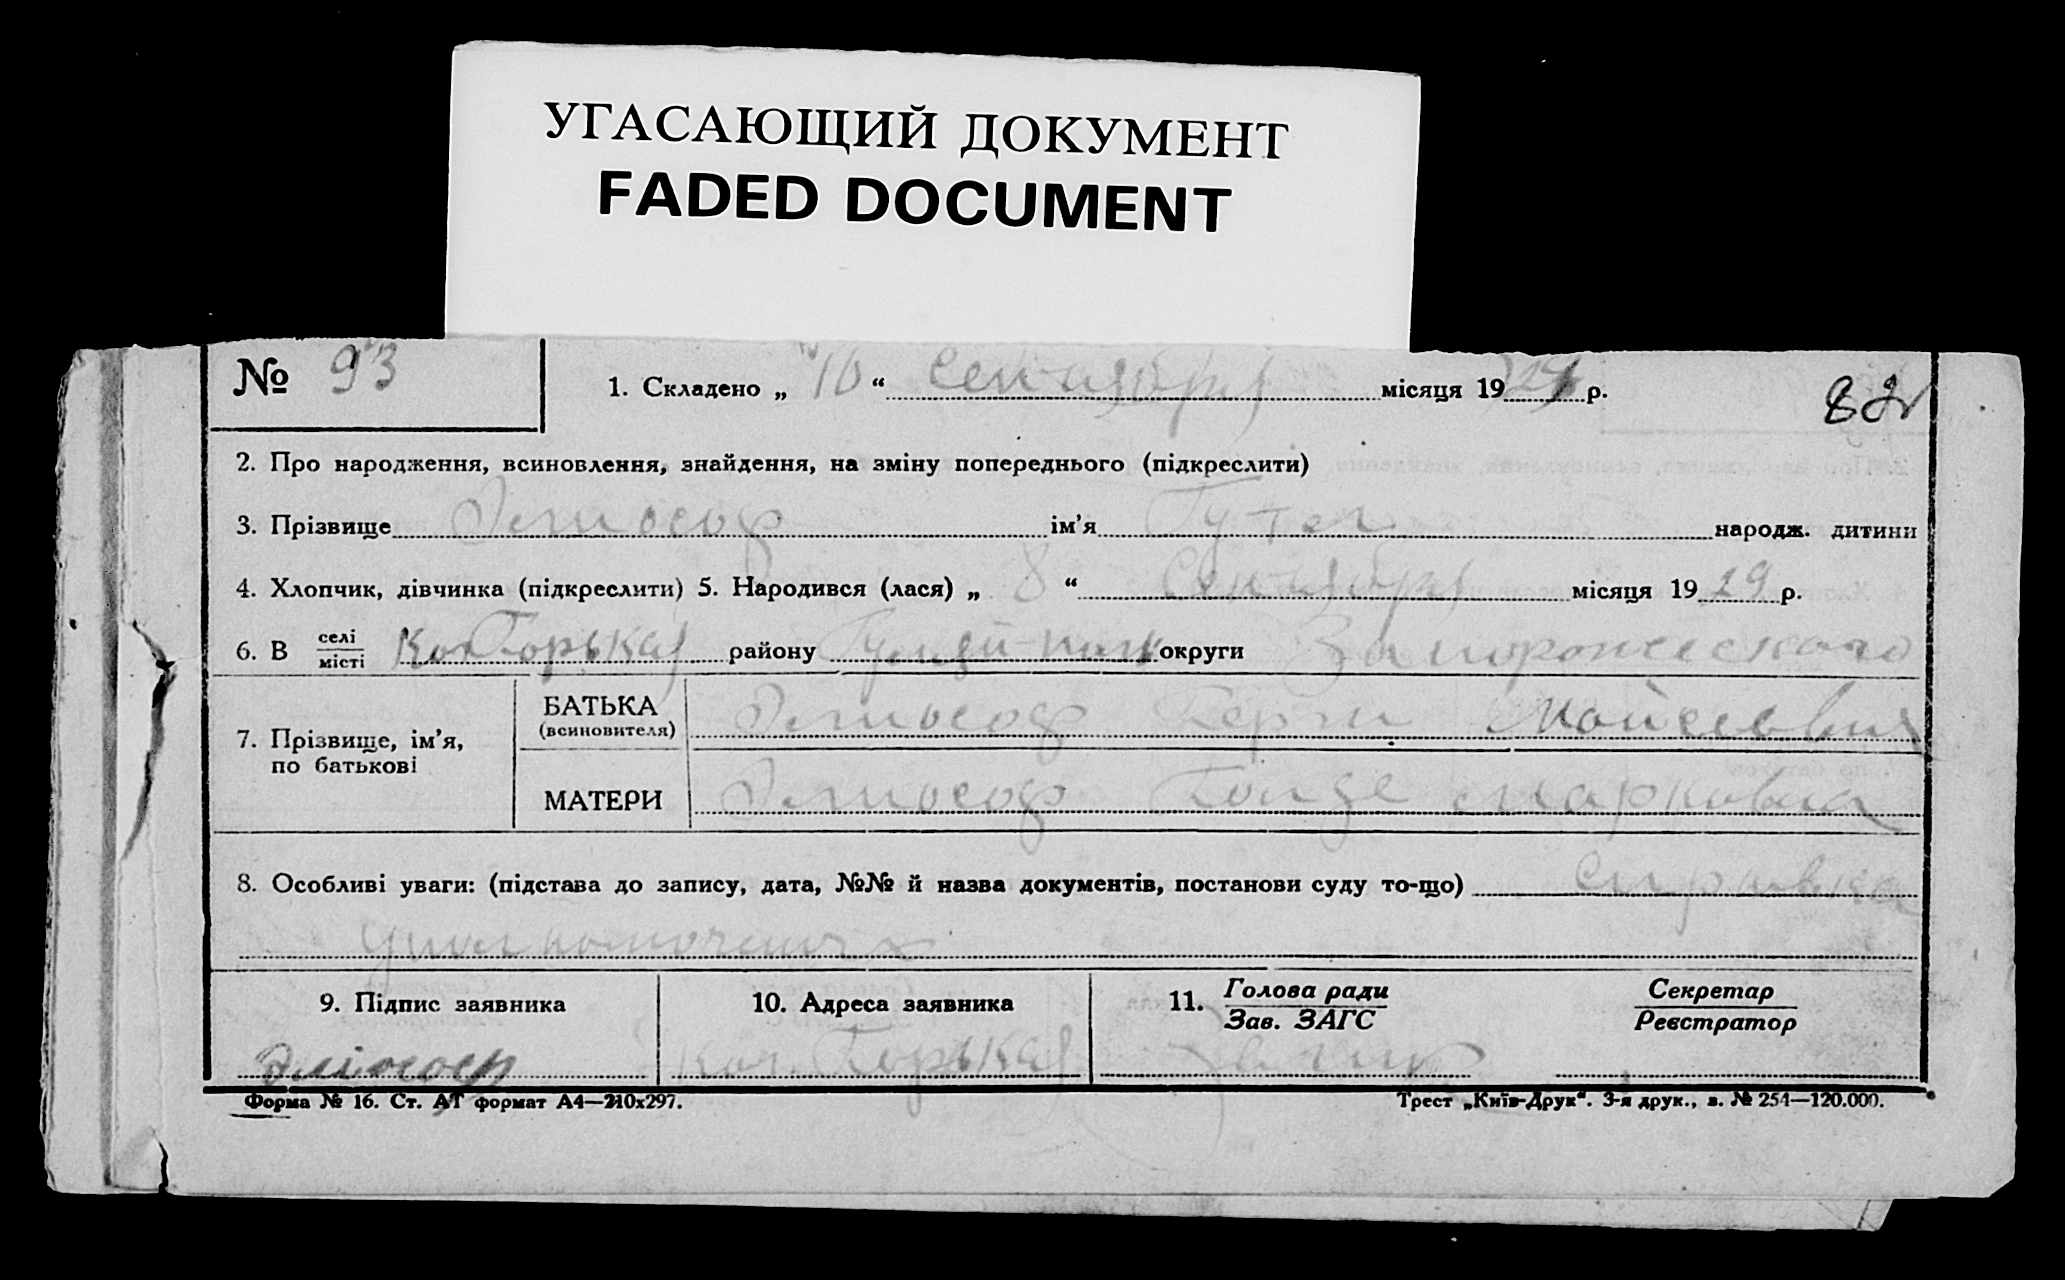 УГАСАЮЩИЙ ДОКУМЕНТ
FADED DOCUMENT
№ 93
1. Складено „ 10 “ Сентября місяця 1929 р.
82
2. Про народження, всиновлення, знайдення, на зміну попереднього (підкреслити)
3. Прізвище Элиософ ім’я Гутел народж. дитини
4. Хлопчик, дівчинка (підкреслити) 5. Народився (лася) „ 8 “ Сентября місяця 1929 р.
6. В селі/місті Кол Горькая району Гуляй-Поле округи Запорожеского
7. Прізвище, ім’я, по батькові
БАТЬКА (всиновителя) Элиософ Герш Мойсеевич
МАТЕРИ Элиософ Марковна
8. Особливі уваги: (підстава до запису, дата, №№ й назва документів, постанови суду то-що) Справка
уполномоченого
9. Підпис заявника
10. Адреса заявника
11. Голова ради/Зав. ЗАГС
Секретар/Реєстратор
Элиософ
Кол. Горькая
Форма № 16. Ст. АТ формат А4—210х297.
Трест „Київ-Друк“. 3-я друк., з. № 254—120.000.